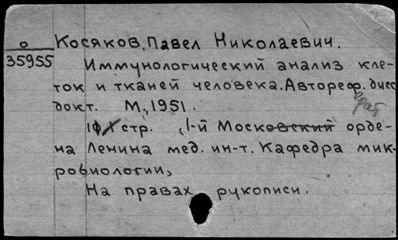 о
35955
Косяков, Павел Николаевич.
Иммунологический анализ кле-
ток и тканей человека. Автореф. дисс
докт. М., 1951.
стр. 1-й Московский орде-
на Ленина мед. ин-т. Кафедра мик-
робиологии,
На правах рукописи.